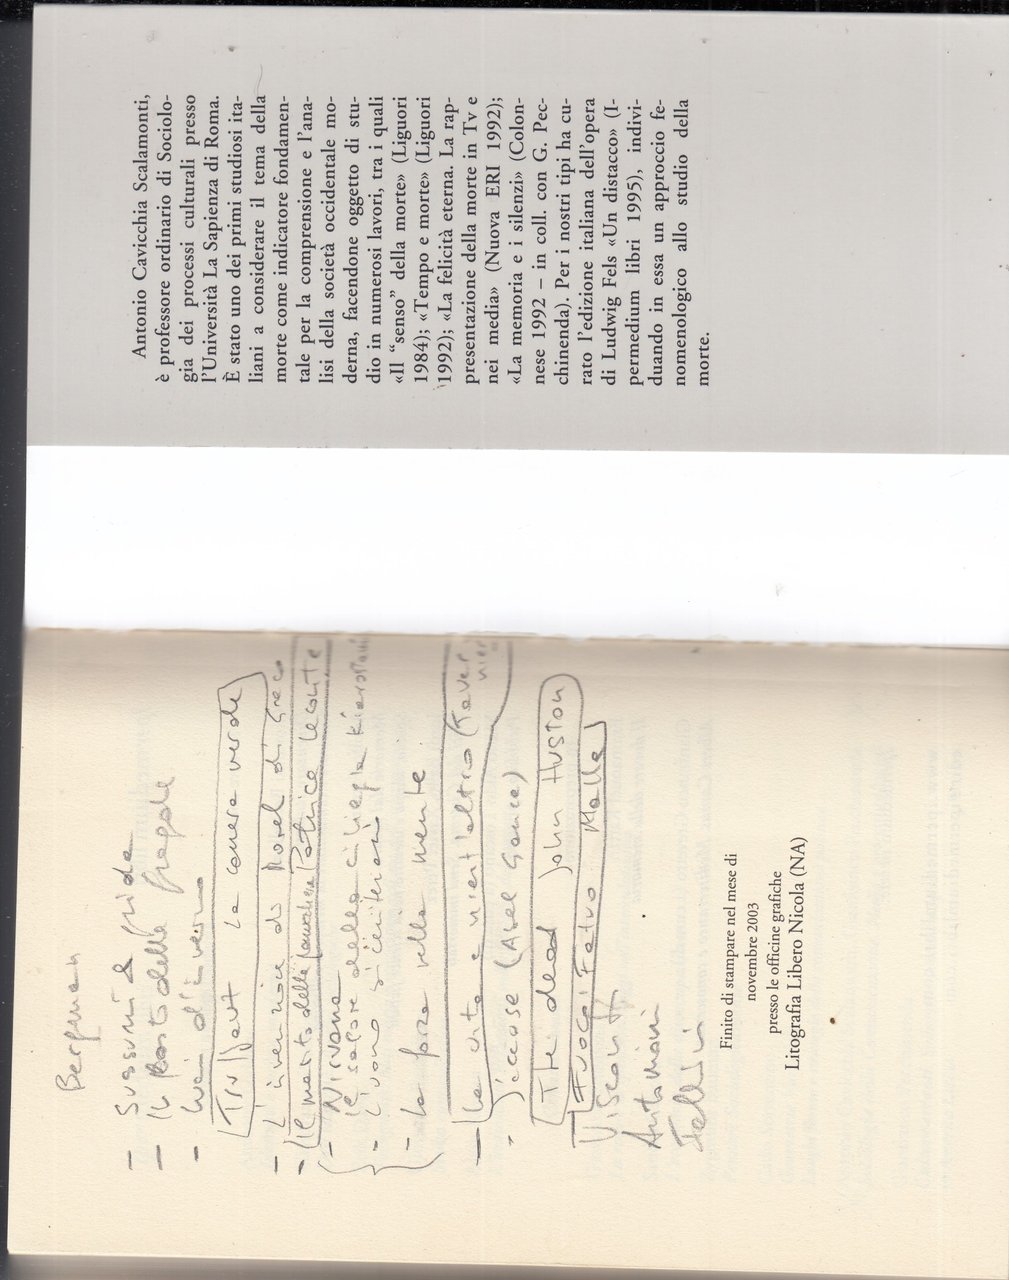 Antonio Cavicchia Scalamonti,
è professore ordinario di Sociolo-
gia dei processi culturali presso
l'Università La Sapienza di Roma.
È stato uno dei primi studiosi ita-
liani a considerare il tema della
morte come indicatore fondamen-
tale per la comprensione e l'ana-
lisi della società occidentale mo-
derna, facendone oggetto di stu-
dio in numerosi lavori, tra i quali
«Il “senso” della morte» (Liguori
1984); «Tempo e morte» (Liguori
1992); «La felicità eterna. La rap-
presentazione della morte in Tv e
nei media» (Nuova ERI 1992);
«La memoria e i silenzi» (Colon-
nese 1992 – in coll. con G. Pec-
chinenda). Per i nostri tipi ha cu-
rato l'edizione italiana dell'opera
di Ludwig Fels «Un distacco» (I-
permedium libri 1995), indivi-
duando in essa un approccio fe-
nomenologico allo studio della
morte.
Bergman
- Sussurri & grida
- Il posto delle fragole
- Luci d'inverno
Truffaut La camera verde
- L'invenzione di Morel di Greco
- Il marito della parrucchiera Patrice Leconte
- Nirvana
Il sapore della ciliegia Kiarostami
-
- La forza della mente
- La vita e nient'altro (Taver
nier
- J'accuse (Abel Gance)
The dead John Huston
Fuoco Fatuo Malle
Visconti
Antonioni
Fellini
Finito di stampare nel mese di
novembre 2003
presso le officine grafiche
Litografia Libero Nicola (NA)